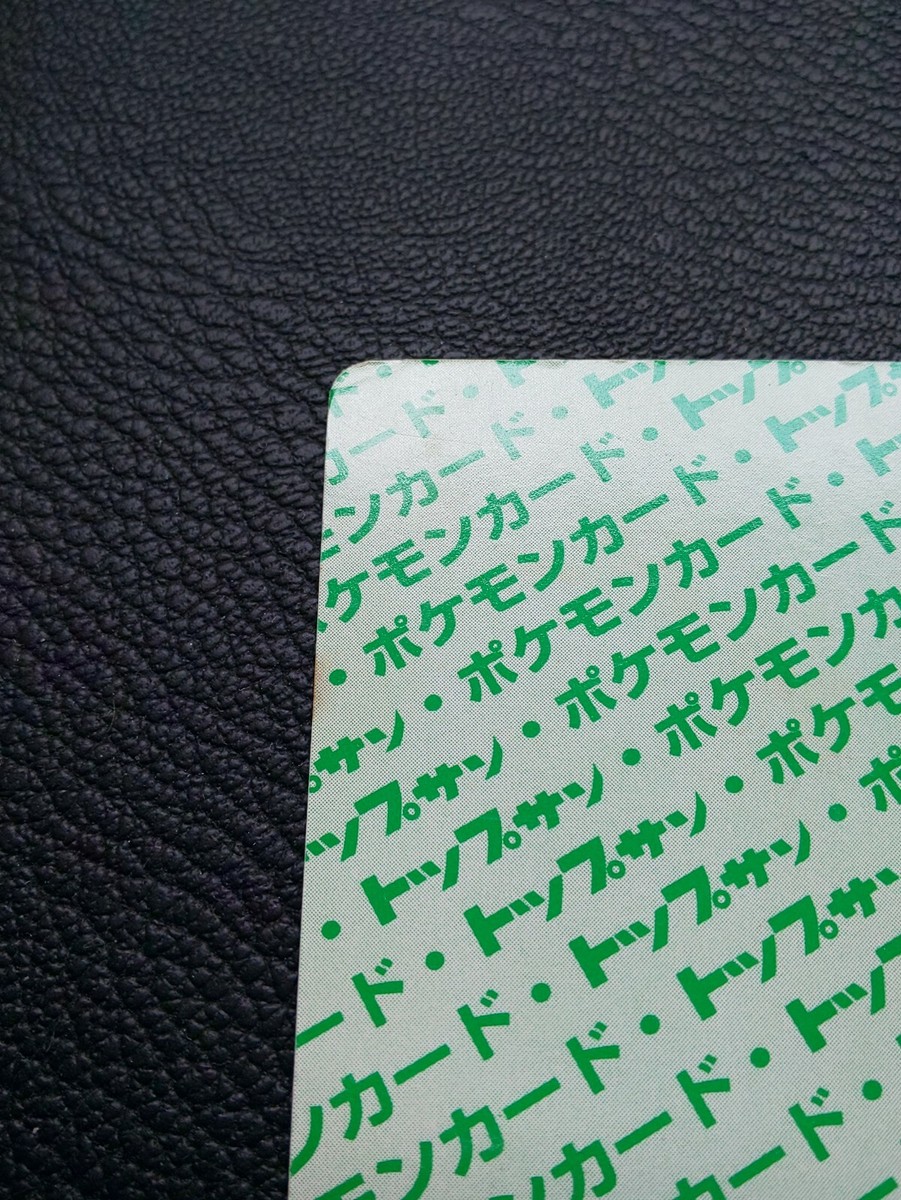 カード・ト
モンカード・トッ
ポケモンカード・トップ
・ポケモンカード・トップ
サン・ポケモンカード・ト
ップサン・ポケモンカード
・トップサン・ポケモンカ
ード・トップサン・ポケモ
ンカード・トップサン・ポ
モンカード・トップサン
ンカード・トッ
カード・